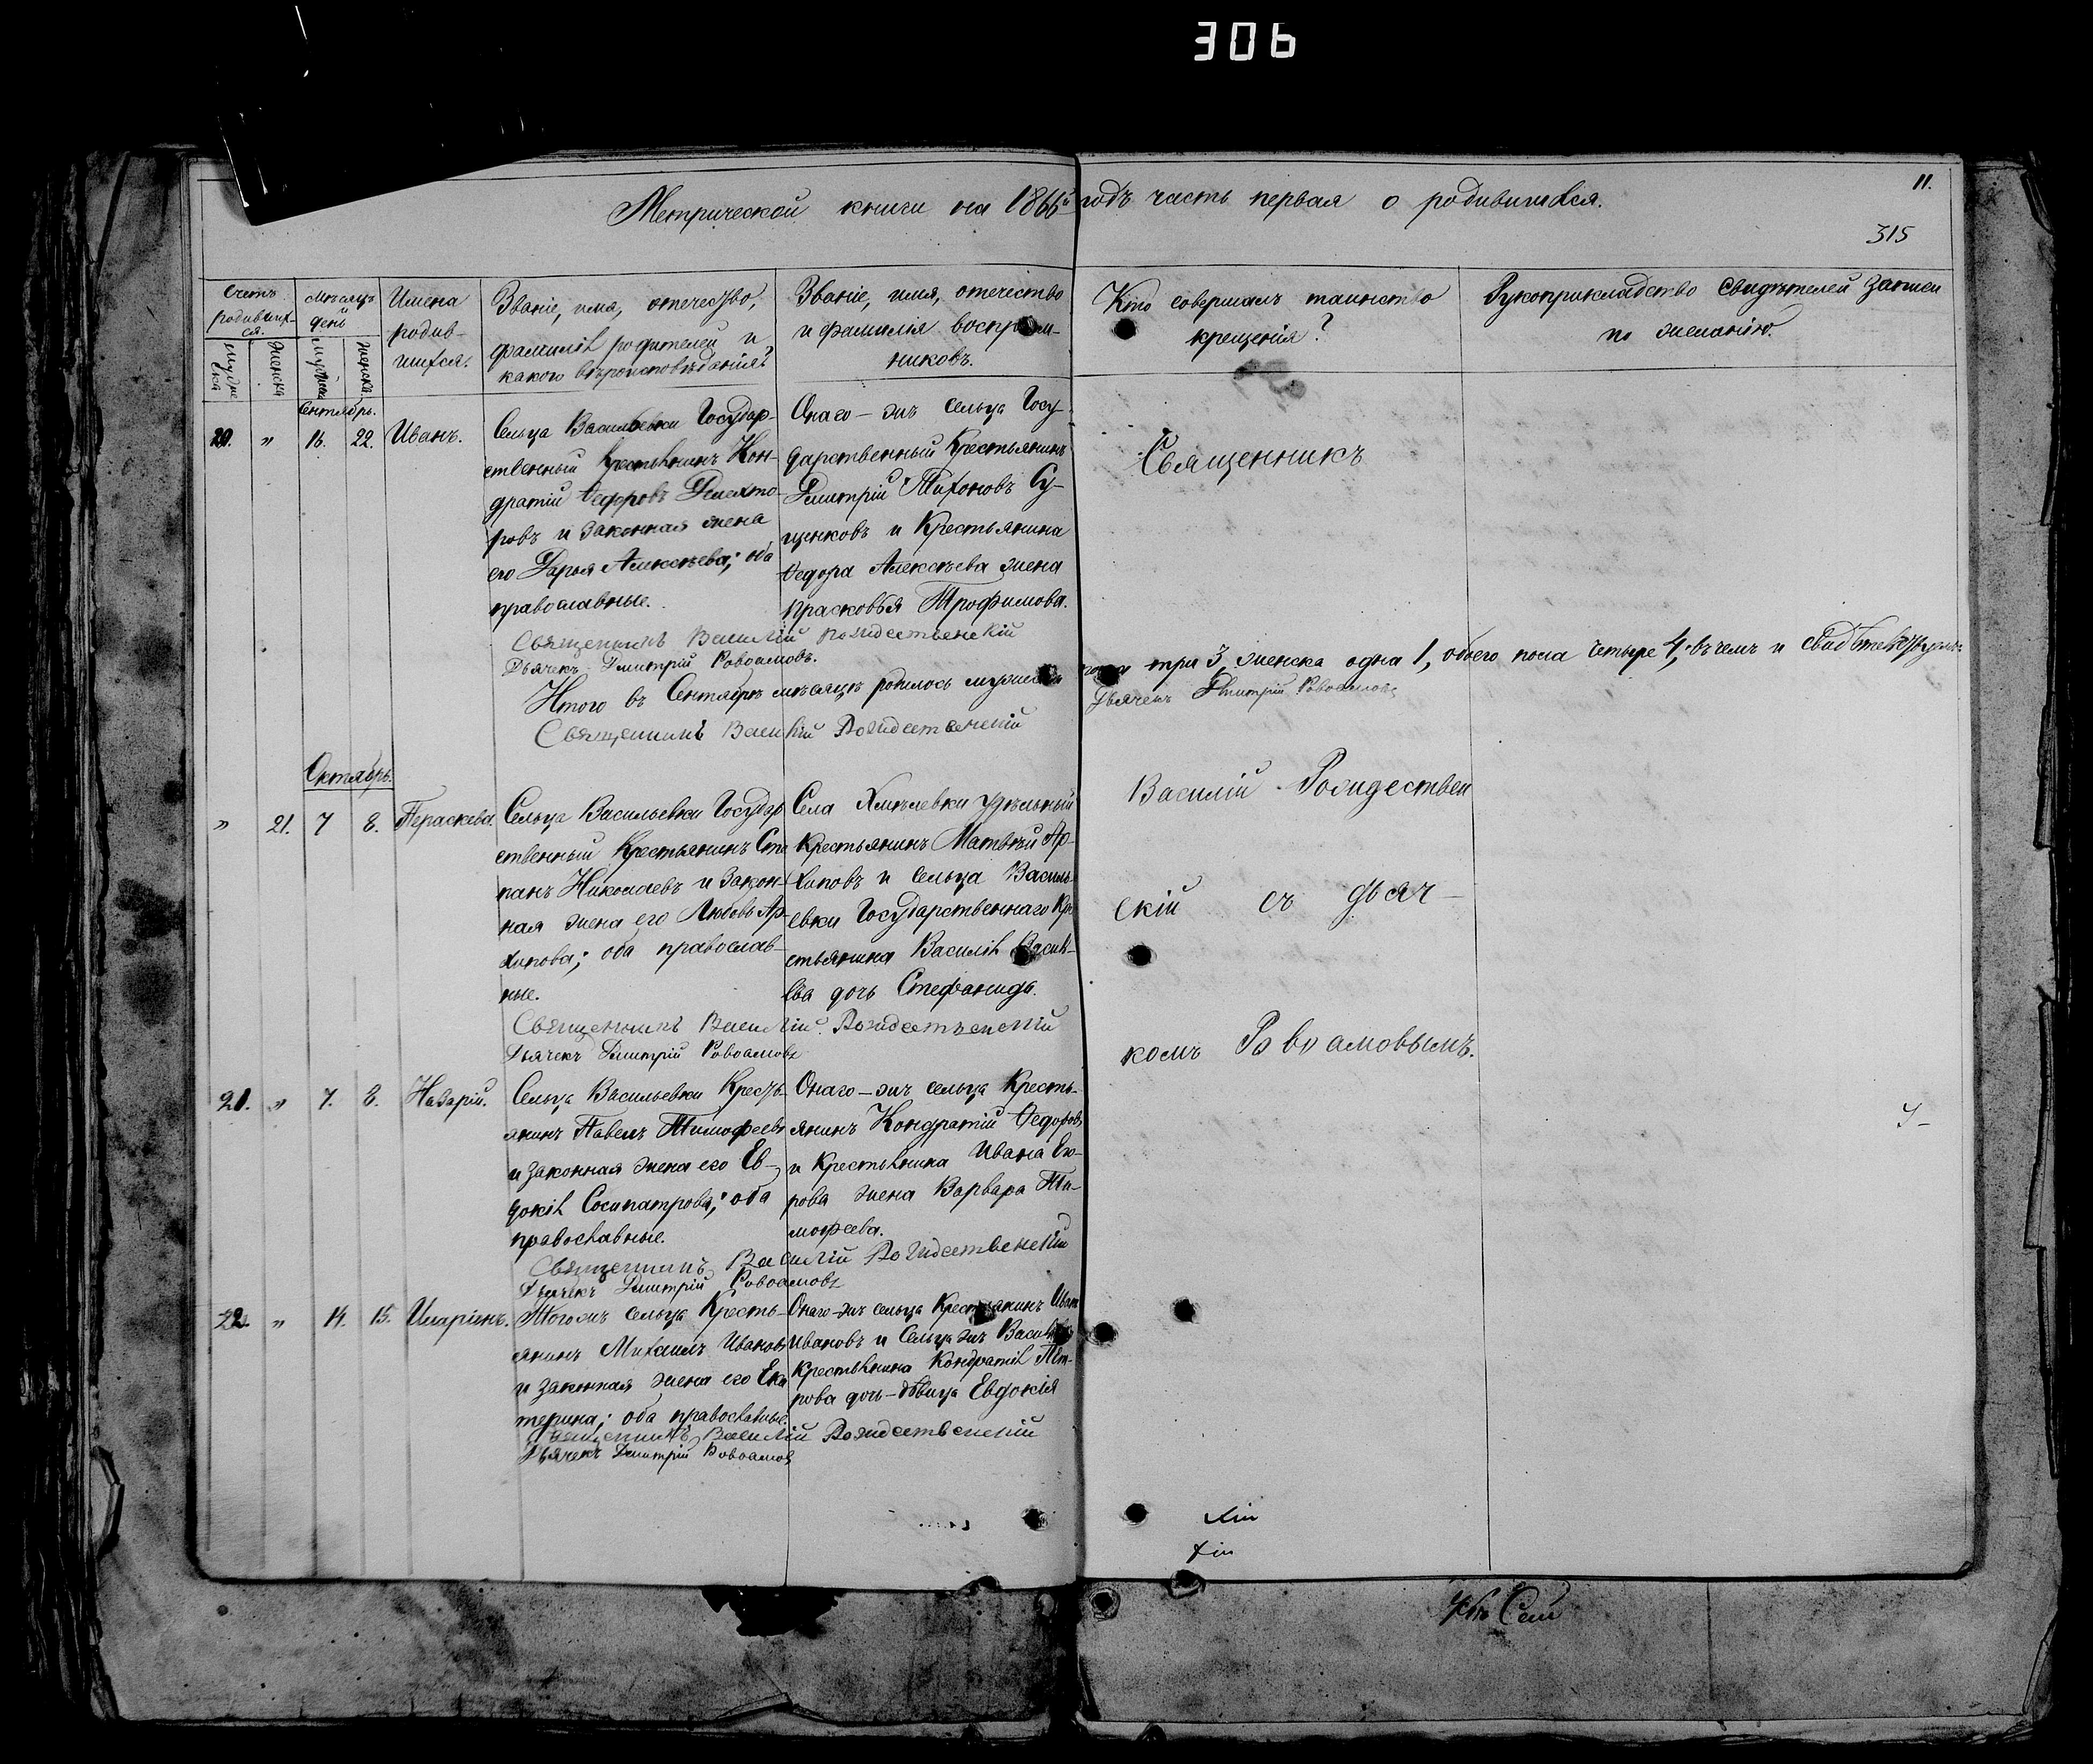 306
Метрической книги на 1866й годъ часть первая о родившихся.
11.
315
Счетъ родившихся.
Мужеска
Женска
Мѣсяцъ день
Имена родив-
шихся.
Званіе, имя, отечество,
фамилія родителей и
какого вѣроисповѣданія?
Званіе, имя, отечество
и фамилія воспріем-
никовъ.
Кто совершалъ таинство
крещенія?
Рукоприкладство свидѣтелей записи
по желанію.
Сентябрь.
20. " 16. 22. Иванъ.
Сельца Васильевки Государ-
ственный Крестьянинъ Кон-
дратій Ѳедоровъ
ровъ и законная жена
его Дарья Алексѣева; оба
православные.
Онаго-же сельца Госу-
дарственный Крестьянинъ
Димитрій Тихоновъ Су-
щенковъ и Крестьянина
Ѳедора Алексѣева жена
Прасковья Трофимова.
Священникъ Василій Рождественскій
Дьячекъ Димитрій Ровоамовъ.
Итого въ Сентябрѣ мѣсяцѣ родилось мужеска пола три 3, женска одна 1, обоего пола четыре 4, въ чемъ и свидѣтельствуемъ:
Священникъ Василій Рождественскій
Дьячекъ Димитрій Ровоамовъ
Октябрь.
" 21. 7 8. Параскева.
Сельца Васильевки Государ
ственный Крестьянинъ Сте
панъ Николаевъ и закон-
ная жена его Любовь Ар-
хипова; оба православ-
ные.
Села Хмѣлевки удѣльный
Крестьянинъ Матвѣй Ар-
хиповъ и сельца Василь-
евки Государственнаго Кре
стьянина Василія Василь-
ева дочь Стефанида.
Священникъ Василій Рождественскій
Дьячекъ Димитрій Ровоамовъ
21. " 7. 8. Назарій.
Сельца Васильевки Кресть-
янинъ Павелъ Тимофеевъ
и законная жена его Ев-
докія Сосипатрова; оба
православные.
Онаго-же сельца Кресть-
янинъ Кондратій Ѳедоровъ
и Крестьянина Ивана Его-
рова жена Варвара Ти-
мофеева.
Священникъ Василій Рождественскій
Дьячекъ Димитрій Ровоамовъ
22. " 14. 15. Иларіонъ.
Тогожъ сельца Кресть-
янинъ Михаилъ Ивановъ
и законная жена его Ека
терина; оба православные.
Онаго-же сельца Крестьянинъ Иванъ
Ивановъ и Сельца же
Крестьянина Кондратія Пет-
рова дочь-дѣвица Евдокія
Священникъ Василій Рождественскій
Дьячекъ Димитрій Ровоамовъ
Священникъ
Василій Рождествен
скій съ дьяч-
комъ Ровоамовымъ.